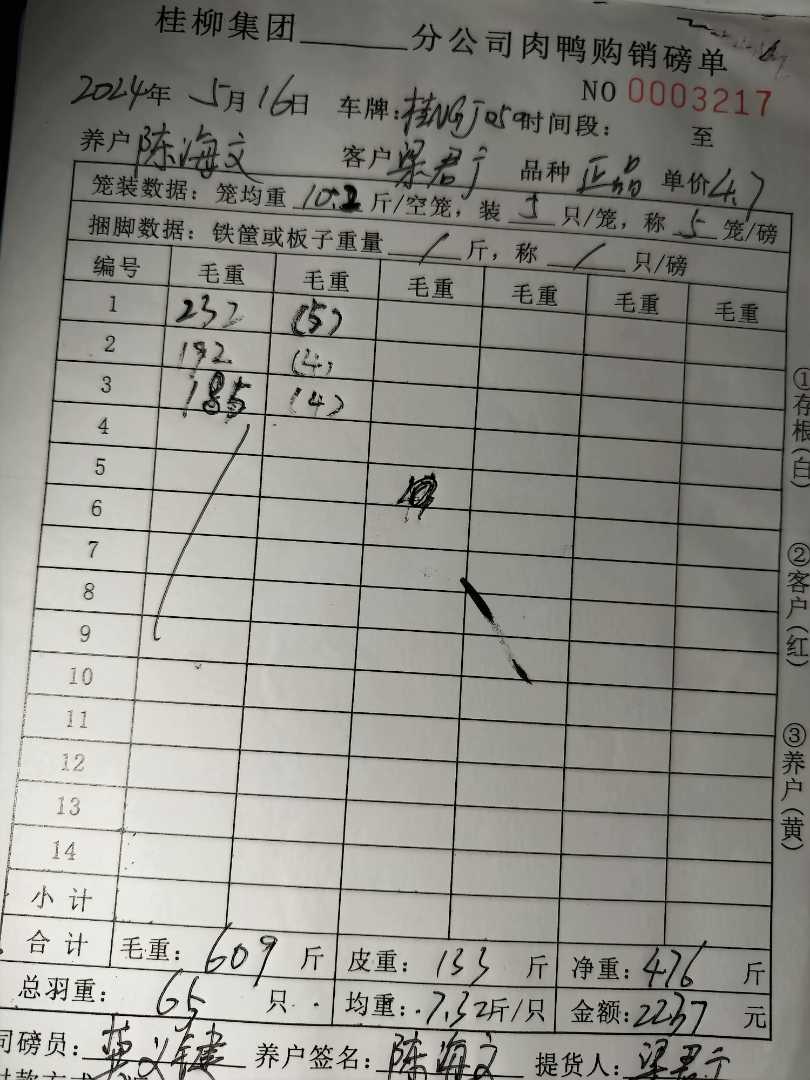 桂柳集团______分公司肉鸭购销磅单
NO 0003217
2024年 5月16日 车牌: 时间段: 至
养户 陈海文 客户 梁君宁 品种 正品 单价4.7
笼装数据: 笼均重 10.2 斤/空笼, 装 5 只/笼, 称 5 笼/磅
捆脚数据: 铁筐或板子重量 / 斤, 称 / 只/磅
编号 毛重 毛重 毛重 毛重 毛重 毛重
1 232 (5)
2 192 (4)
3 185 (4)
4
5
6
7
8
9
10
11
12
13
14
小计
合计 毛重: 609 斤 皮重: 133 斤 净重: 476 斤
总羽重: 65 只 均重: 7.32斤/只 金额: 2237 元
司磅员: 养户签名: 陈海文 提货人: 梁君宁
付款方式
①存根(白) ②客户(红) ③养户(黄)